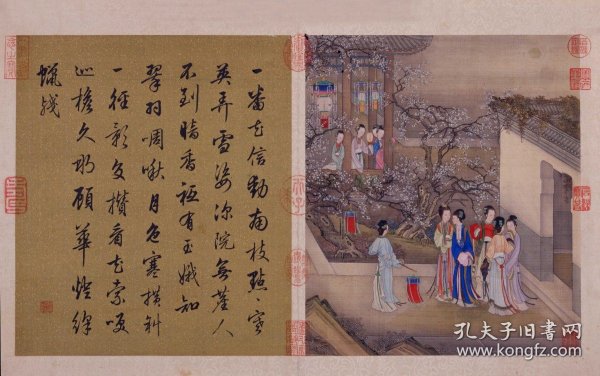 一番花信動南枝點點寒
英弄雪姿深院無塵人
不到暗香祗有玉娥知
翠羽啁啾月色寒橫斜
一徑影交攢看花索咲
巡檐久那顧華燈絳
蠟殘
孔夫子旧书网
www.kongfz.com